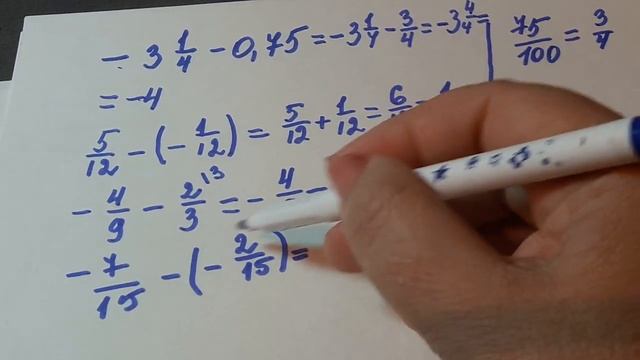 - 3 1/4 - 0,75 = -3 1/4 - 3/4 = -3 4/4 = | 75/100 = 3/4
= -4
5/12 - (- 1/12) = 5/12 + 1/12 = 6/
- 4/9 - 2/3 \3 = - 4/
- 7/15 - (- 2/15) =